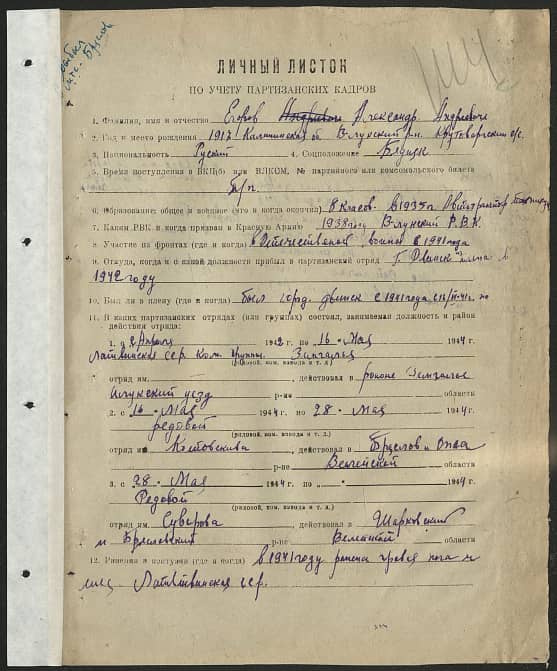 ЛИЧНЫЙ ЛИСТОК
ПО УЧЕТУ ПАРТИЗАНСКИХ КАДРОВ
1. Фамилия, имя и отчество Егоров Александр Андриевич
2. Год и место рождения 1917 Калининская об В-Лукский
3. Национальность Руский 4. Соцположение Бедняк
5. Время поступления в ВКП(б) или ВЛКСМ, № партийного или комсомольского билета
б/п.
6. Образование: общее и военное (что и когда окончил) 8 класов. в 1935г.
7. Каким РВК и когда призван в Красную Армию 1938 году В-Лукский Р.В.К.
8. Участие на фронтах (где и когда) в Отечественой войны в 1941 года
9. Откуда, когда и с какой должности прибыл в партизанский отряд Г. Двинск в
1942 году
10. Был ли в плену (где и когда) был город. двинск с 1941 года по
11. В каких партизанских отрядах (или группах) состоял, занимаемая должность и район
действия отряда:
1. с 2 Апреля 1942 по 16 Мая 1944
Латвинская сср. Ком. группы.
(рядовой, ком. взвода и т. д.)
отряд им. действовал в районе
уезд р-не области
2. с 16 Мая 1944 по 28 Мая 1944
редовой
(рядовой, ком. взвода и т. д.)
отряд им. действовал в
р-не Вилейской области
3. с 28 Мая 1944 по 1944
Редовой
(рядовой, ком. взвода и т. д.)
отряд им. Суворова действовал в Шарковский
и Браславский р-не области
12. Ранения и контузии (где и когда) в 1941 году ранена нога и
Латвинская сср.